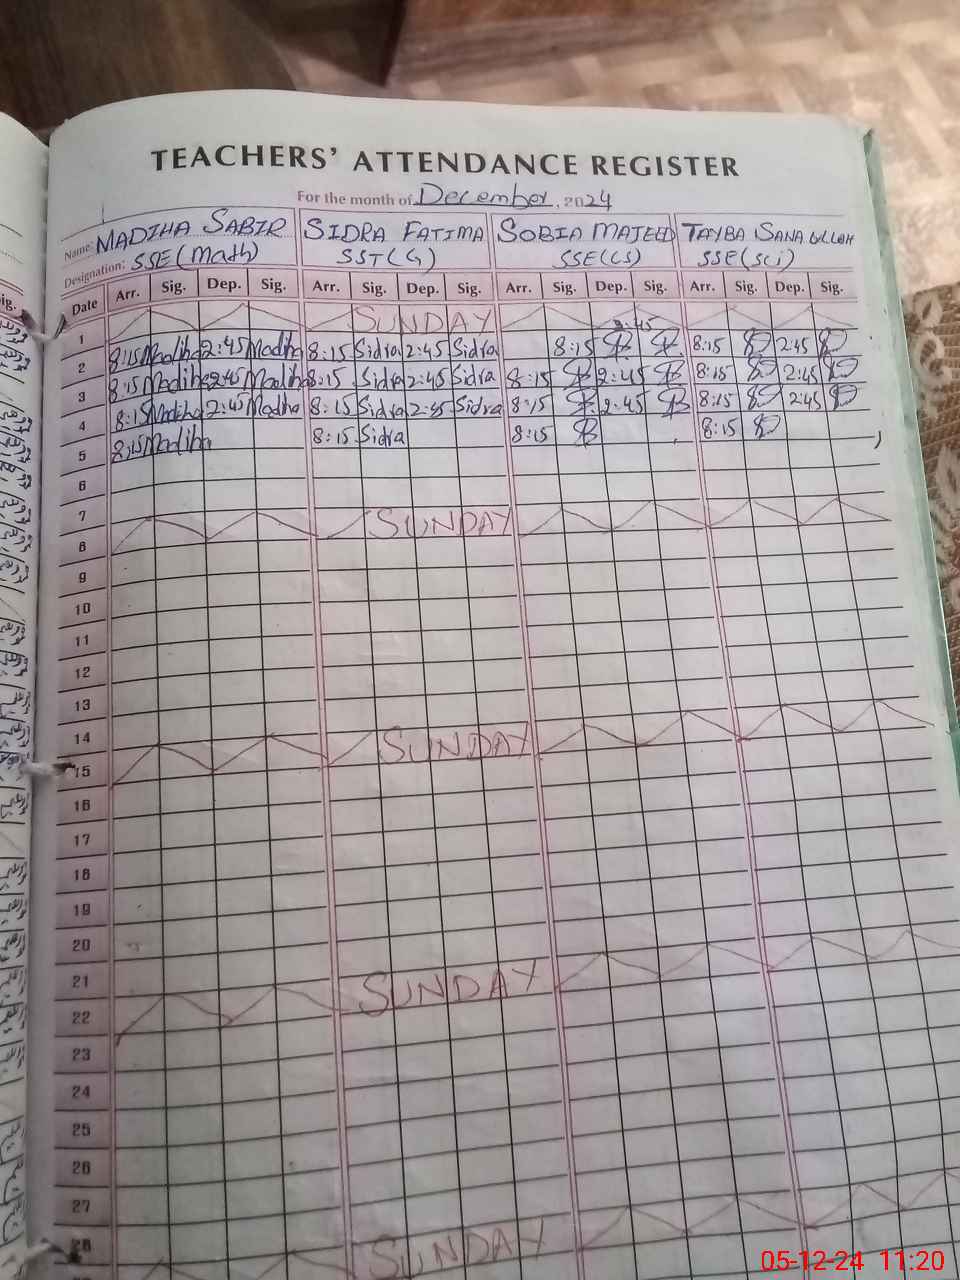 TEACHERS' ATTENDANCE REGISTER
For the month of December, 2024
Name: MADIHA SABIR SIDRA FATIMA SOBIA MAJEED TAYBA SANAULLAH
Designation: SSE (Math) SST (G) SSE (CS) SSE (Sci)
Date Arr. Sig. Dep. Sig. Arr. Sig. Dep. Sig. Arr. Sig. Dep. Sig. Arr. Sig. Dep. Sig.
1 SUNDAY
2:45
2 8:15 Madiha 2:45 Madiha 8:15 Sidra 2:45 Sidra 8:15 8:15 2:45
3 8:15 Madiha 2:45 Madiha 8:15 Sidra 2:45 Sidra 8:15 2:45 8:15 2:45
4 8:15 Madiha 2:45 Madiha 8:15 Sidra 2:45 Sidra 8:15 2:45 8:15 2:45
5 8:15 Madiha 8:15 Sidra 8:15 8:15
6
7
8 SUNDAY
9
10
11
12
13
14
15 SUNDAY
16
17
18
19
20
21
22 SUNDAY
23
24
25
26
27
28
SUNDAY
05-12-24 11:20